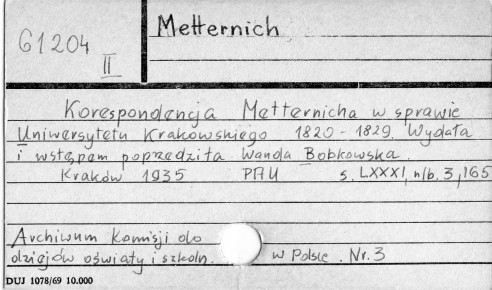 61204
II
Metternich
Korespondencja Metternicha w sprawie
Uniwersytetu Krakowskiego 1820-1829. Wydała
i wstępem poprzedziła Wanda Bobkowska.
Kraków 1935 PAU s. LXXXI, nlb. 3, 165
Archiwum Komisji do
dziejów oświaty i szkoln. w Polsce. Nr. 3
DUJ 1078/69 10.000